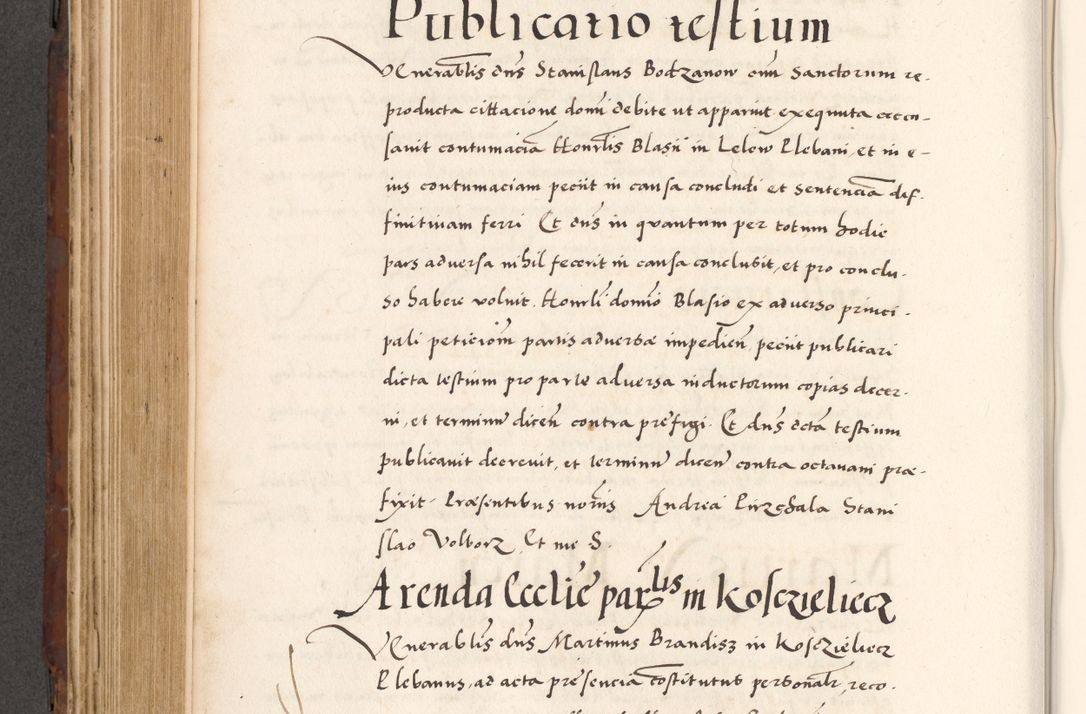 Publicatio testium
Venerablis dns Stanislaus Bodzanow cum Sanctorum re-
producta cittacione domi debite ut apparuit exequuta accu-
sauit contumaciã Honrlis Blasii in Lelow Plebani, et in e-
ius contumaciam peciit in causa concludi et Sentenciã dif-
finitiuam ferri Et dns in quantum per totum hodie
pars aduersa nihil fecerit in causa conclusit, et pro conclu-
so habere voluit. Honrli domio Blasio ex aduerso princi-
pali peticiom partis aduersæ impedien, peciit publicari
dicta testium pro parte aduersa inductorum copias decer-
ni, et terminũ dicen contra prefigi. Et dns dcta testium
publicauit decreuit, et terminũ dicen contra octauam præ-
fixit. Præsentibus nornis Andrea Pirzchala Stani
slao Volborz Et me S.
Arenda Ecclie parlis in Kosczieliecz
Venerablis dns Martinus Brandisz in Kosczieliecz
Plebanus, ad acta presencia cõstitutus personalr, reco-